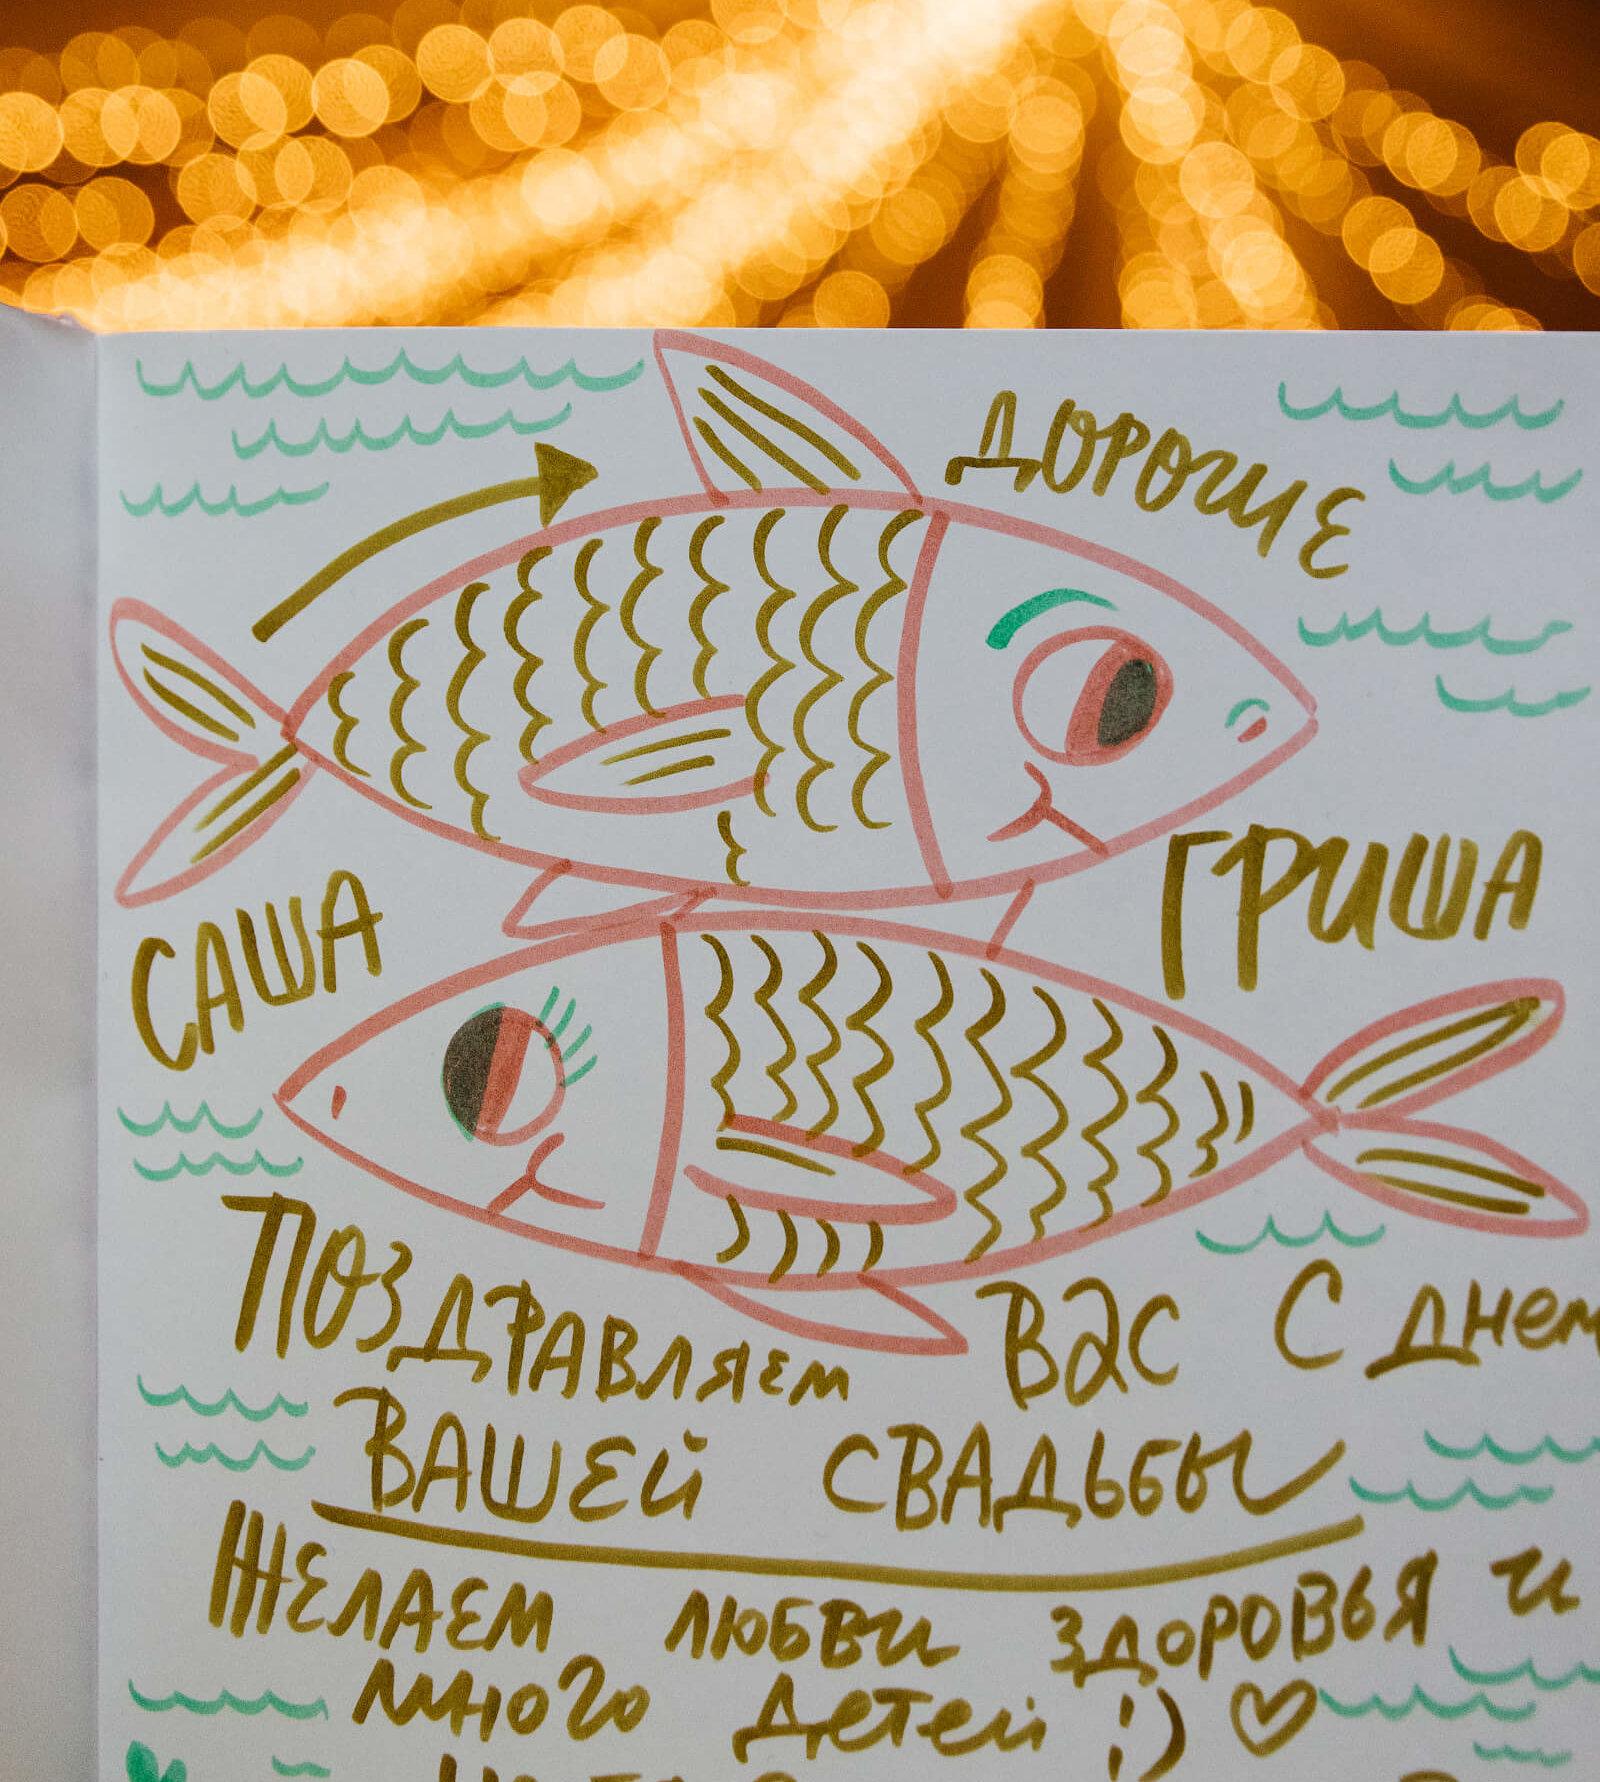 ДОРОГИЕ
ГРИША
САША
ПОЗДРАВЛЯЕМ ВАС С ДНЕМ
ВАШЕЙ СВАДЬБЫ
ЖЕЛАЕМ ЛЮБВИ ЗДОРОВЬЯ И
МНОГО ДЕТЕЙ :) ♡